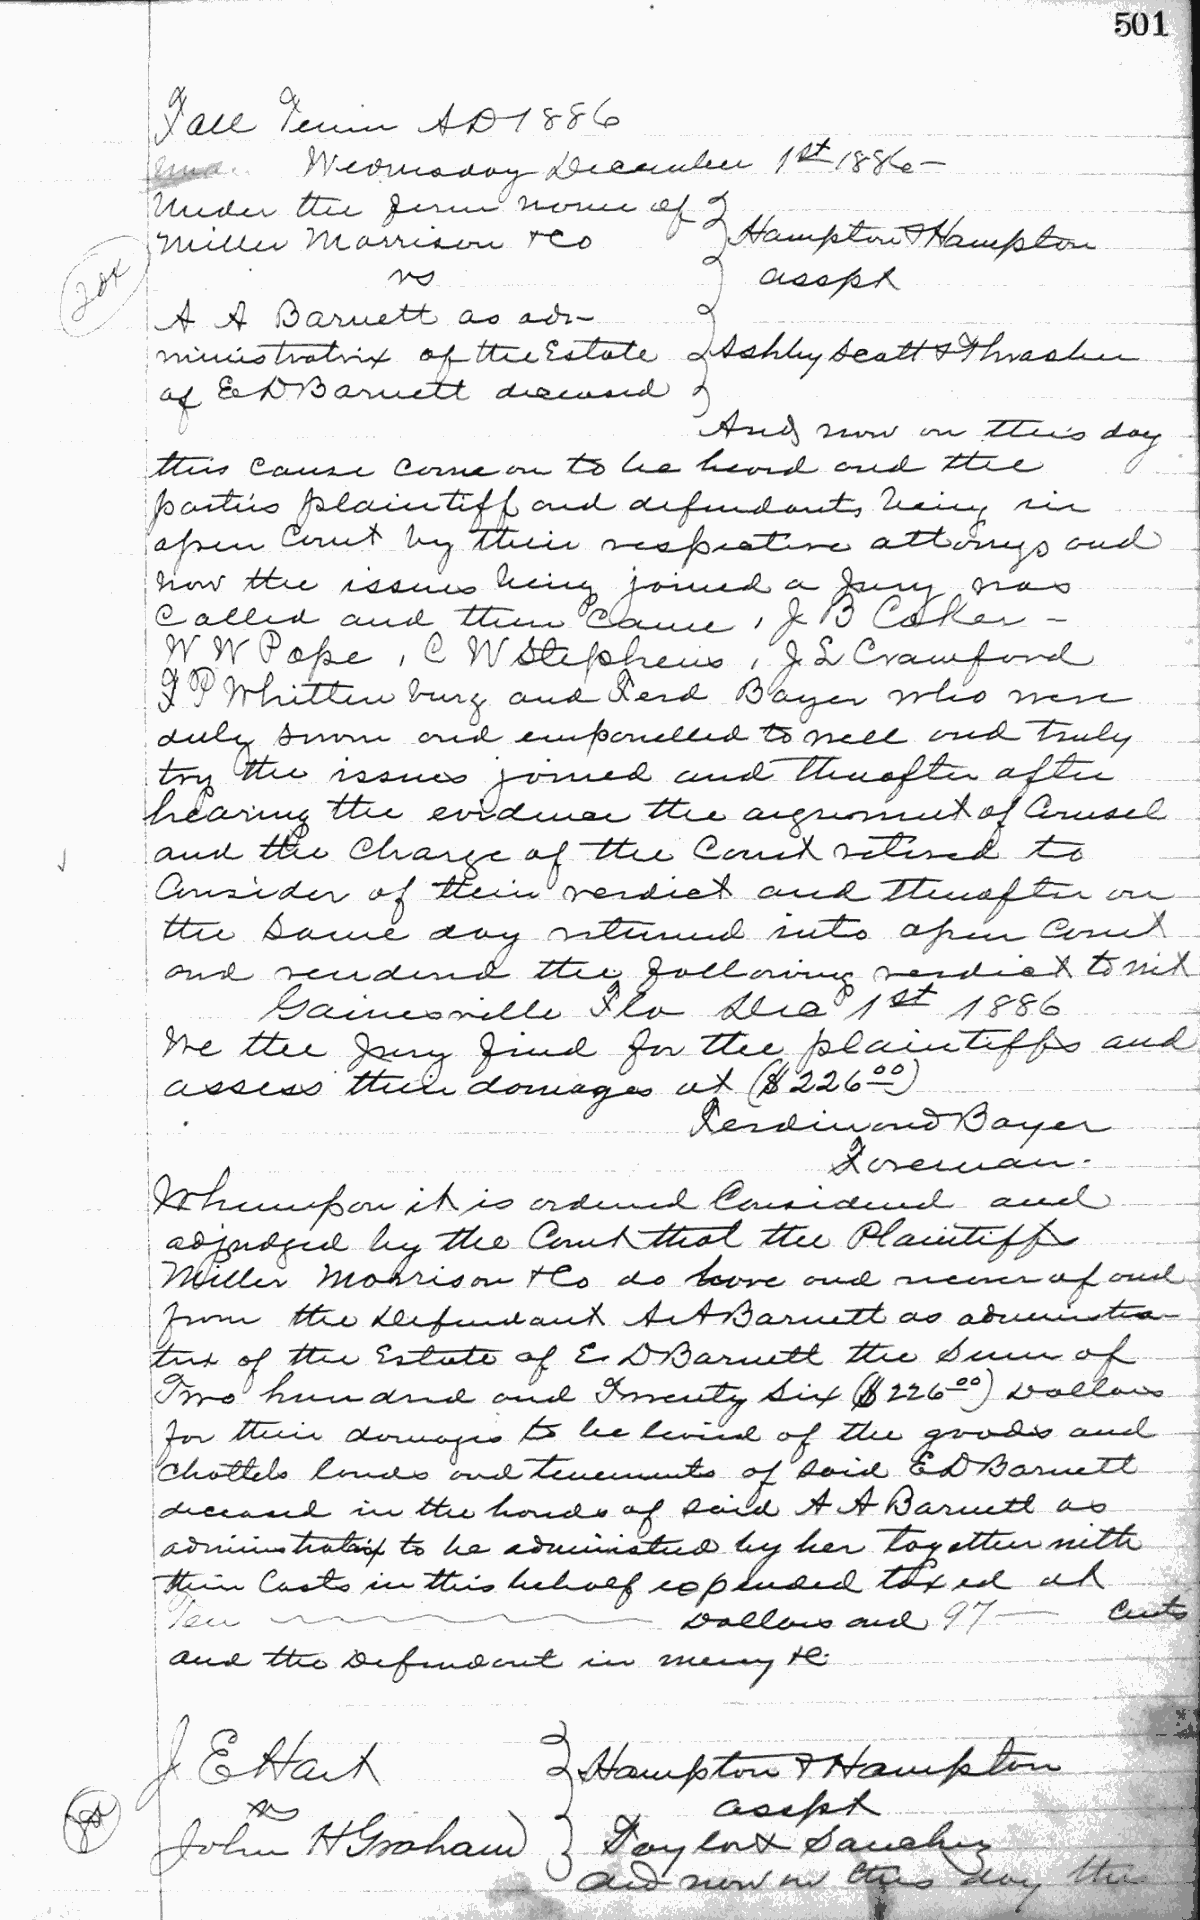 501
Fall Term AD 1886
Wednesday December 1st 1886 -
Under the firm name of
Miller Morrison & Co } Hampton & Hampton
vs } asspt
A A Barnett as ad-
ministratrix of the Estate } Ashby Scott & Thrasher
of E D Barnett deceased
And now on this day
this cause come on to be heard and the
parties plaintiff and defendants being in
open Court by their respective attornys and
now the issues being joined a Jury was
Called and then Came, J B Coker -
W W Pope, C W Stephens, J L Crawford
F P Whittenburg and Ferd Bayer who were
duly sworn and empanelled to well and truly
try the issues joined and thereafter after
hearing the evidence the argument of Counsel
and the Charge of the Court retired to
Consider of their verdict and thereafter on
the Same day returned into open Court
and rendered the following verdict to wit
Gainesville Fla Dec 1st 1886
We the Jury find for the plaintiffs and
assess their damages at ($226.00)
Ferdinand Bayer
Foreman.
Whereupon it is ordered Considered and
adjudged by the Court that the Plaintiffs
Miller Morrison & Co do have and recover of and
from the Defendant A A Barnett as administra-
trix of the Estate of E D Barnett the Sum of
Two hundred and Twenty Six ($226.00) Dollars
for their damages to be levied of the goods and
Chattels lands and tenements of said E D Barnett
deceased in the hands of said A A Barnett as
administratrix to be administered by her together with
their Costs in this behalf expended taxed at
Ten Dollars and 97 Cents
and the Defendant in mercy &c.
J E Hart } Hampton & Hampton
vs asspt
John H Graham } Taylor & Sanchez
And now on this day the